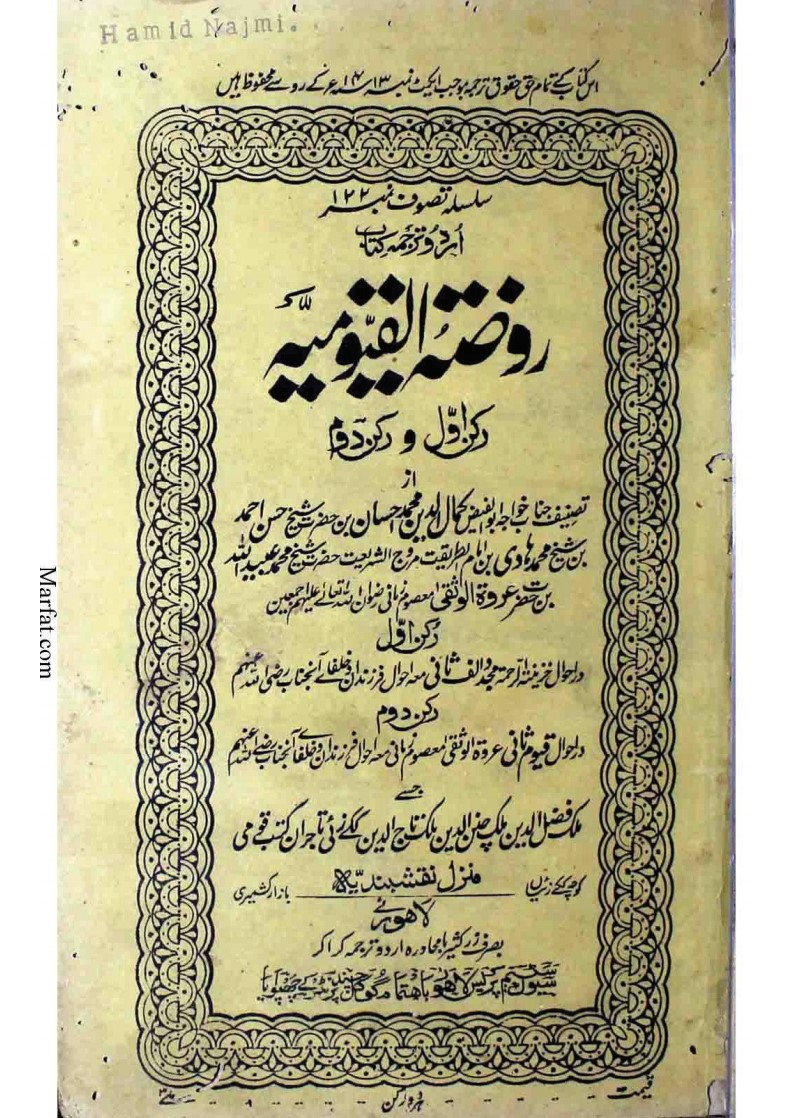 Hamid Najmi.
اس کتاب کے تمام حق حقوق ترجمہ بموجب ایکٹ نمبر ۳ سنہ ۱۹۱۴ء کے رو سے محفوظ ہیں
سلسلہ تصوف نمبر ۱۲۲
اُردو ترجمہ کتاب
روضۃ القیومیہ
رکن اوّل و رکن دوم
از
تصنیف جناب خواجہ ابوالفیض کمال الدین محمد احسان بن حضرت شیخ حسن احمد
بن شیخ محمد ہادی بن امام الطریقت مروج الشریعت حضرت شیخ محمد عبید اللہ
بن حضرت عروۃ الوثقیٰ معصوم زمانی رضوان اللہ تعالےٰ علیہم اجمعین
رُکن اوّل
در احوال خزینۃ الرحمۃ مجدد الف ثانی معہ احوال فرزندان و خلفائے آنجناب رضی اللہ عنہم
رکن دوم
در احوال قیوم ثانی عروۃ الوثقیٰ معصوم زمانی معہ احوال فرزندان و خلفائے آنجناب رضی اللہ عنہم
جسے
ملک فضل الدین ملک چنن الدین ملک تاج الدین ککے زئی تاجران کتب قومی
کوچہ ککے زئیاں منزل نقشبندیہ بازار کشمیری
لاہور نے
بصرف زر کثیر بامحاورہ اردو ترجمہ کرا کر
سٹیم پریس لاہور باہتمام پرنٹر کے چھپوایا
قیمت ہر دو رکن
Marfat.com